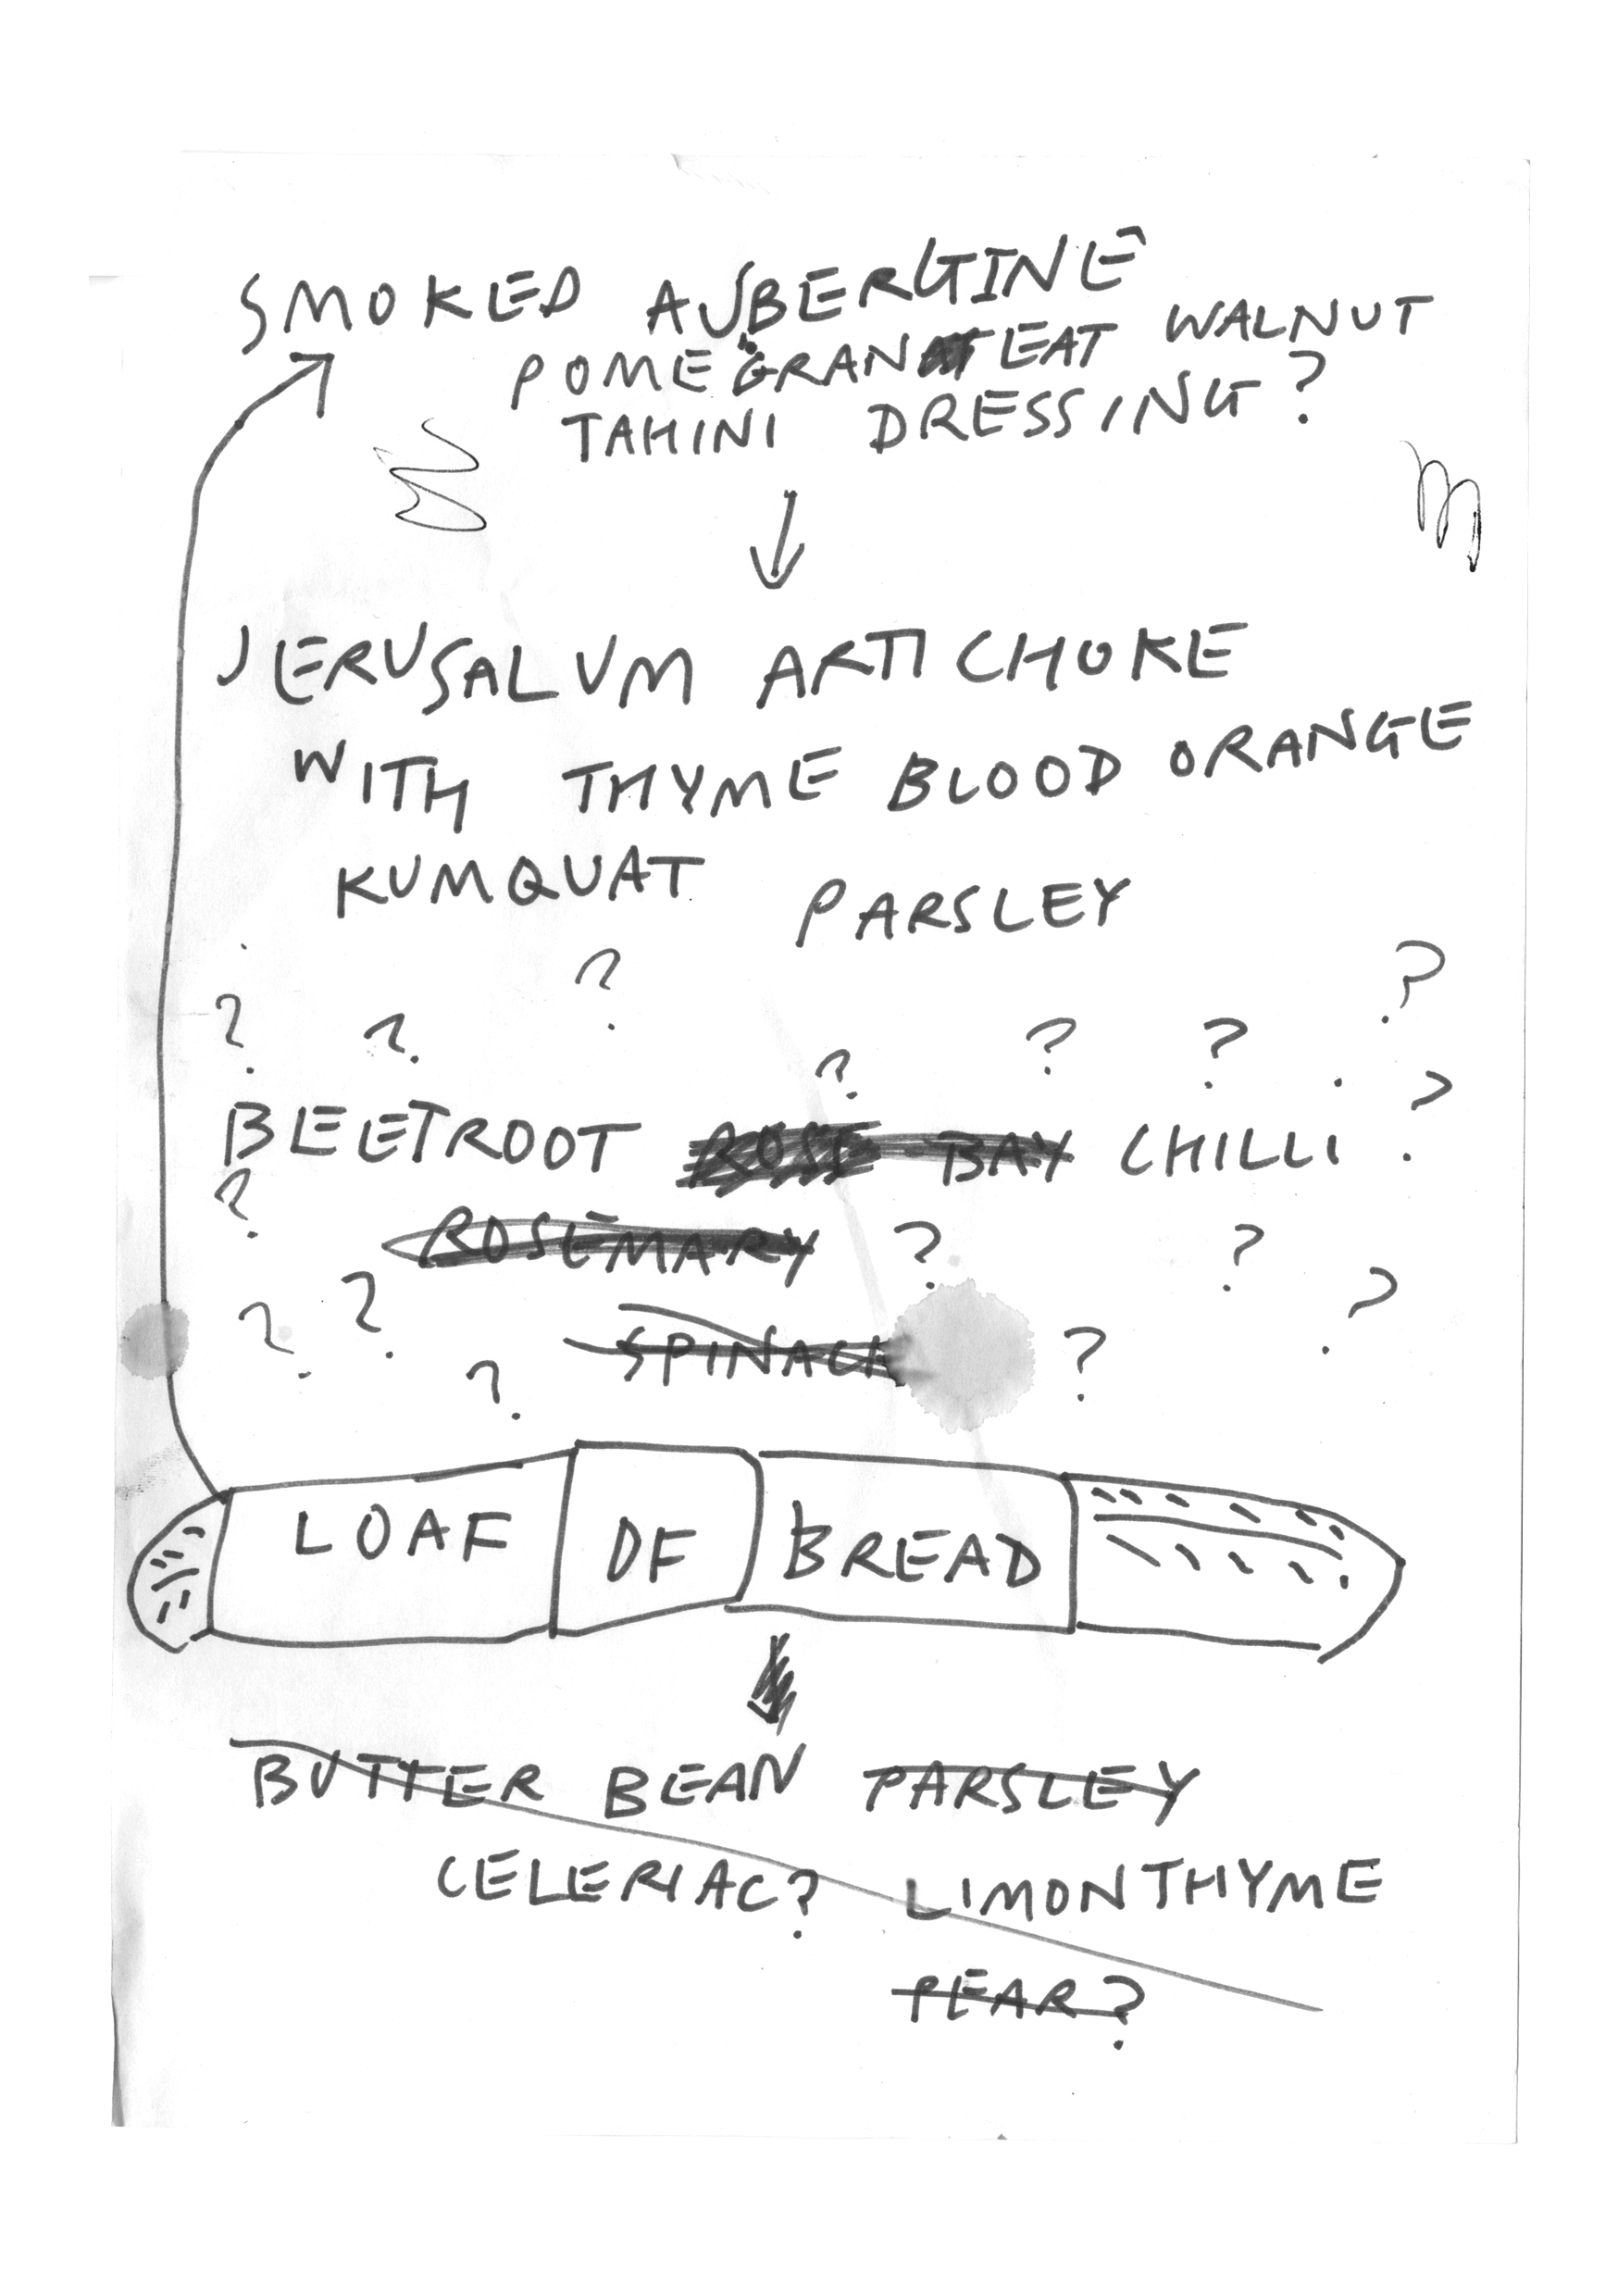 SMOKED AUBERGINE
POMEGRANATEAT WALNUT
TAHINI DRESSING?
JERUSALUM ARTICHOKE
WITH THYME BLOOD ORANGE
KUMQUAT PARSLEY
? ? ? ? ? ? ?
BEETROOT ROSE BAY CHILLI ?
? ROSEMARY ? ?
? ? ? SPINACH ? ?
LOAF OF BREAD
BUTTER BEAN PARSLEY
CELERIAC? LIMONTHYME
PEAR?